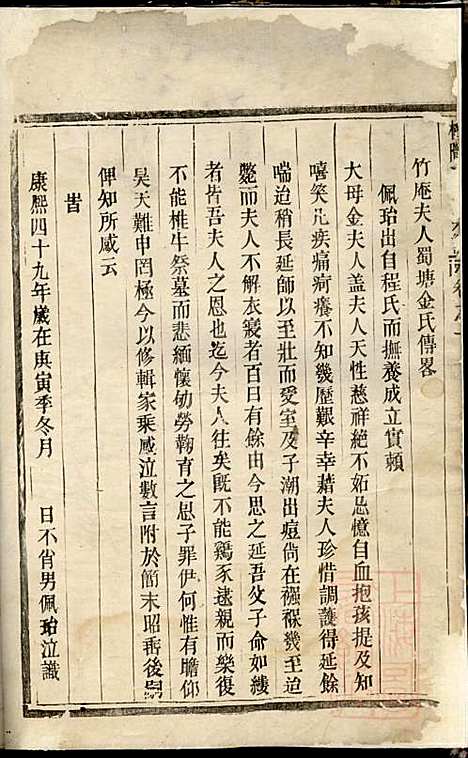 竹庵夫人蜀塘金氏傳畧
佩珆出自程氏而撫養成立實賴
大母金夫人盖夫人天性慈祥絶不妬忌憶自血抱孩提及知
嘻笑凡疾痛疴癢不知幾歷艱辛幸藉夫人珍惜調護得延餘
喘迨稍長延師以至壯而受室及子潮出痘尚在襁褓幾至迫
斃而夫人不解衣寢者百日有餘由今思之延吾父子命如縷
者皆吾夫人之恩也迄今夫人往矣既不能鷄豕逮親而樂復
不能椎牛祭墓而悲緬懷劬勞鞠育之恩子罪伊何惟有瞻仰
昊天難申罔極今以修輯家乘感泣數言附於簡末昭垂後
俾知所感云
旹
康熙四十九年歲在庚寅季冬月 日不肖男佩珆泣識